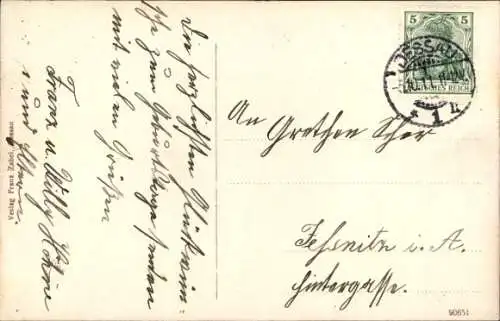 Die herzlichsten Glückwün-
sche zum Geburtstage senden
mit vielen Grüßen
Franz u. Willy Höhne
und Eltern.
Verlag Franz Zabel, Dessau
5
5
DEUTSCHES REICH
DESSAU
11
* 1
An Grethen Scher
Jeßnitz i. A.
Hintergasse.
90651